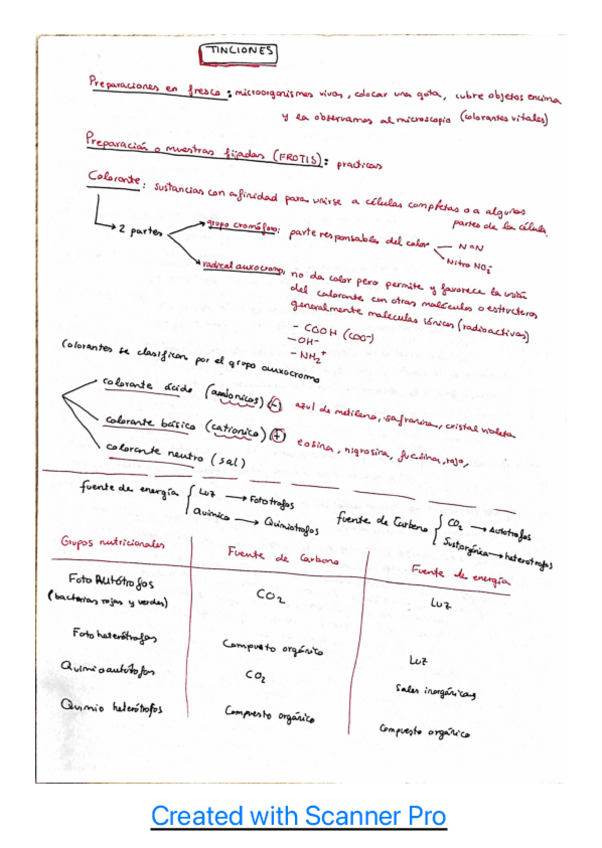 TINCIONES
Preparaciones en fresco: microorganismos vivos, colocar una gota, cubre objetos encima
y la observamos al microscopio (colorantes vitales)
Preparación o muestras fijadas (FROTIS): practicas
Colorante: sustancias con afinidad para unirse a células completas o a algunas
partes de la célula.
2 partes
grupo cromóforo: parte responsable del color
N=N
Nitro NO₂⁻
radical auxocromo: no da color pero permite y favorece la unión
del colorante con otras moléculas o estructuras
generalmente moleculas iónicas (radioactivas)
- COOH (COO⁻)
- OH⁻
- NH₂⁺
Colorantes se clasifican por el grupo auxocromo
colorante ácido (aniónicos) (-) azul de metileno, safranina, cristal violeta
colorante básico (cationico) (+) eosina, nigrosina, fucsina, rojo,
colorante neutro (sal)
fuente de energía
Luz → Fototrofos
Quimico → Quimiotrofos
fuente de Carbono
CO₂ → Autótrofos
Sust.orgánica → heterótrofos
Grupos nutricionales Fuente de Carbono Fuente de energía
Foto Autótrofos CO₂ Luz
(bacterias rojas y verdes)
Foto heterótrofos Compuesto orgánico Luz
Quimioautótrofos CO₂ Sales inorgánicas
Quimio heterótrofos Compuesto orgánico Compuesto orgánico
Created with Scanner Pro